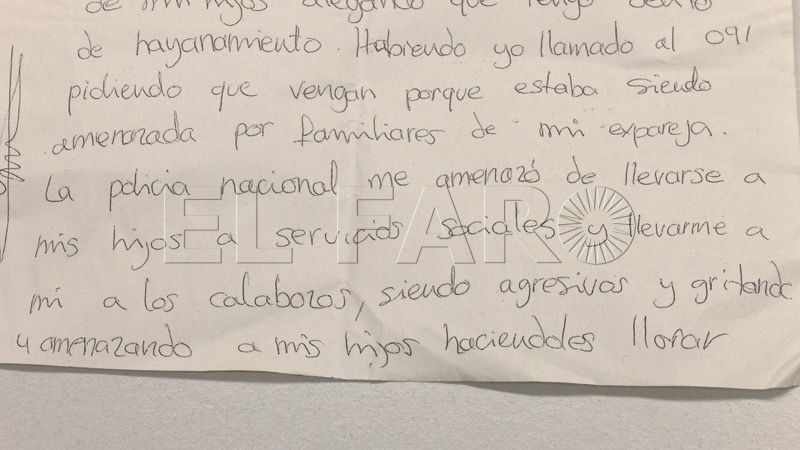 de mi hijos alegando que tengo delito
de hayanamiento. Habiendo yo llamado al 091
pidiendo que vengan porque estaba siendo
amenazada por familiares de mi expareja.
La policia nacional me amenazó de llevarse a
mis hijos a servicios sociales y llevarme a
mi a los calabozos, siendo agresivos y gritando
y amenazando a mis hijos haciendoles llorar
EL FARO